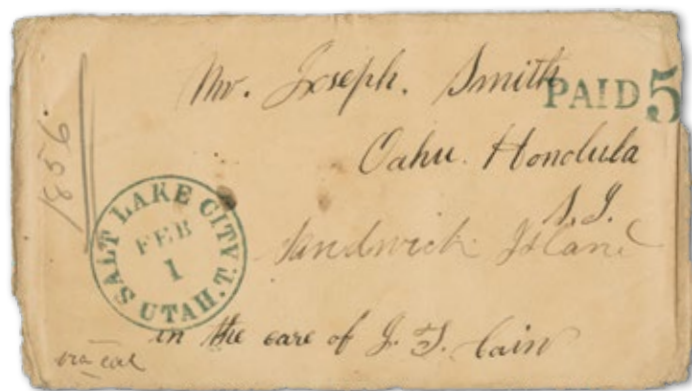 1856
Mr. Joseph. Smith
PAID 5
Oahu. Honolula
S. I.
Sandwich Island
SALT LAKE CITY. UTAH. T.
FEB
1
in the care of J. T. Cain
via cal